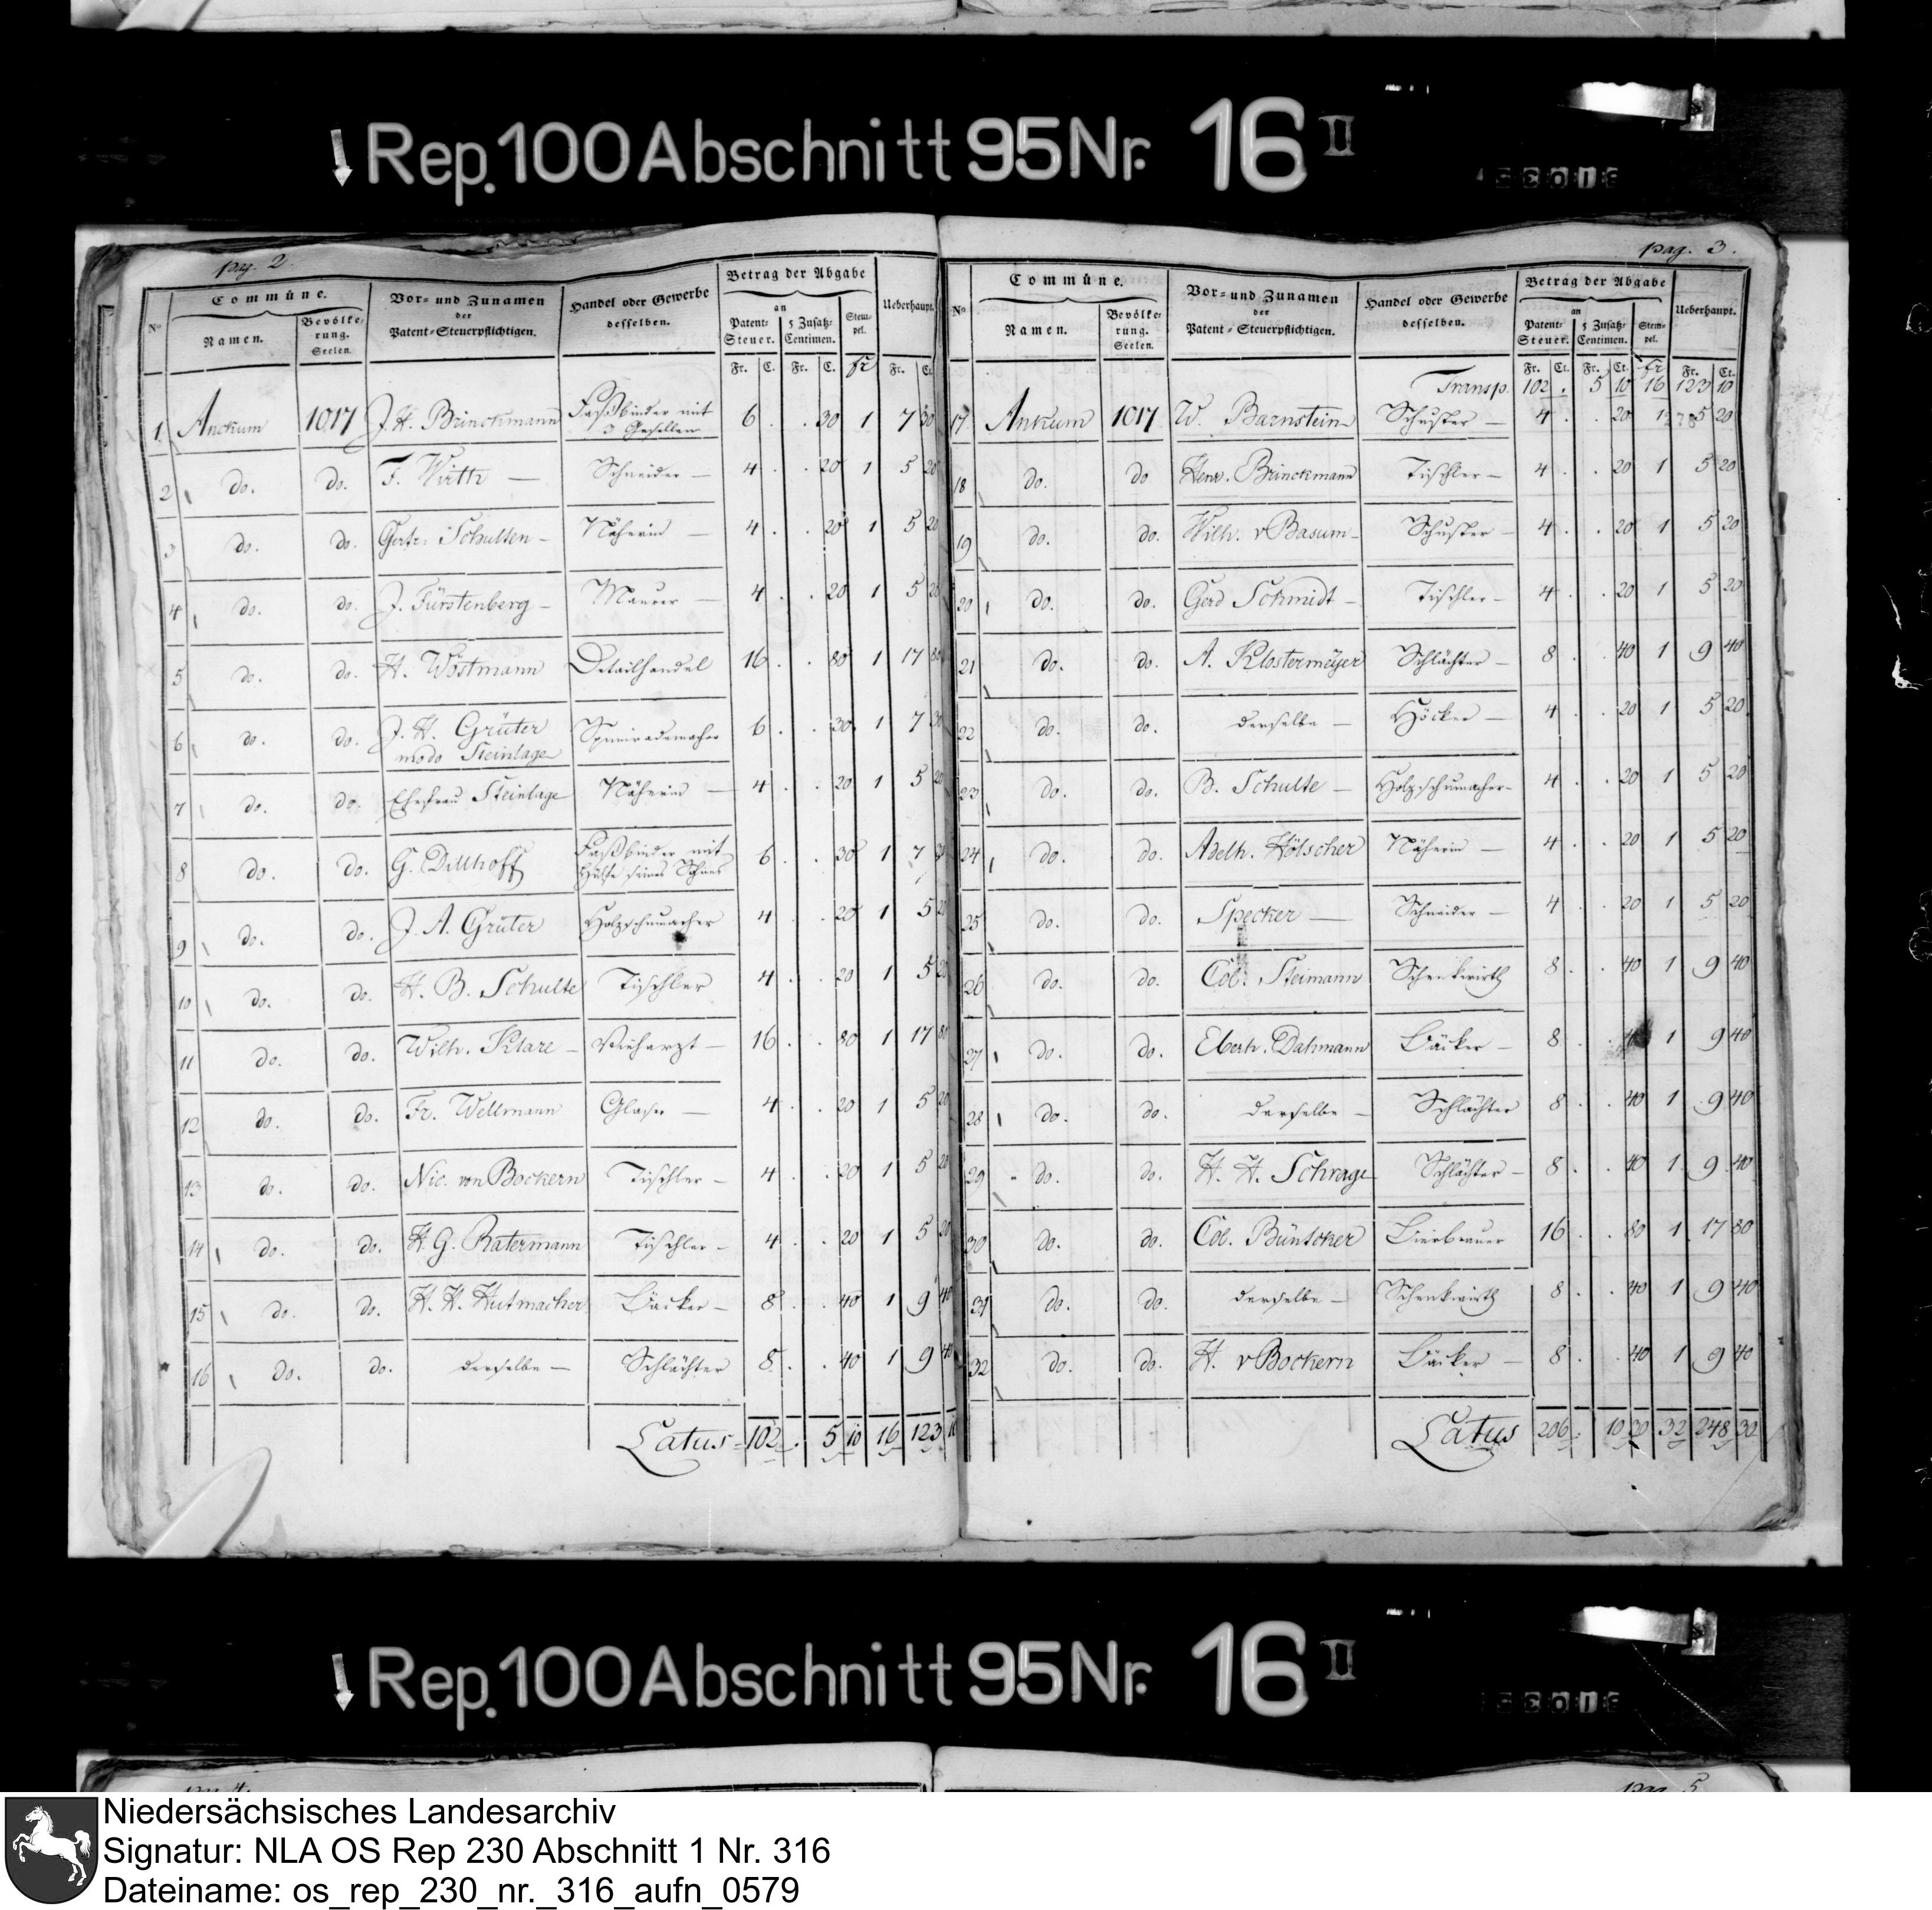 Rep. 100 Abschnitt 95 Nr. 16 II
pag. 2.
Commüne. Vor- und Zunamen der Patent-Steuerpflichtigen. Handel oder Gewerbe desselben. Betrag der Abgabe Ueberhaupt.
No Namen. Bevölkerung. Seelen. an Patent-Steuer. 5 Zusatz-Centimen. Stempel.
Fr. C. Fr. C. fr Fr. Ct
1 Anckum 1017 J. H. Brinckmann Faßbinder mit 3 Gesellen 6 . . 30 1 7 30
2 do. do. F. Wirth — Schneider — 4 . . 20 1 5 20
3 do. do. Gertr: Schulten - Näherin — 4 . . 20 1 5 20
4 do. do. J. Fürstenberg - Maurer — 4 . . 20 1 5 20
5 do. do. H. Wöstmann Detailhandel 16 . . 80 1 17 80
6 do. do. J. H. Grüter modo Steinlage Spinnrademacher 6 . . 30 1 7 30
7 do. do. Ehefrau Steinlage Näherin — 4 . . 20 1 5 20
8 do. do. G. Dillhoff Faßbinder mit Hülfe seines Sohnes 6 . . 30 1 7 30
9 do. do. J. A. Grüter Holzschumacher 4 . . 20 1 5 20
10 do. do. H. B. Schulte Tischler 4 . . 20 1 5 20
11 do. do. Wilh. Klare - Vieharzt — 16 . . 80 1 17 80
12 do. do. Fr. Wellmann Glaser — 4 . . 20 1 5 20
13 do. do. Nic. von Bockern Tischler - 4 . . 20 1 5 20
14 do. do. H. G. Ratermann Tischler - 4 . . 20 1 5 20
15 do. do. H. H. Hutmacher Bäcker - 8 . . 40 1 9 40
16 do. do. derselbe — Schlächter 8 . . 40 1 9 40
Latus - 102 . 5 10 16 123 10
pag. 3.
Commüne. Vor- und Zunamen der Patent-Steuerpflichtigen. Handel oder Gewerbe desselben. Betrag der Abgabe Ueberhaupt.
No Namen. Bevölkerung. Seelen. an Patent-Steuer. 5 Zusatz-Centimen. Stempel.
Fr. Ct. Fr. Ct. fr Fr. Ct.
Transp. 102 . 5 10 16 123 10
17 Ankum 1017 W. Barnstein Schuster — 4 . . 20 1 5 20
18 do. do Henr. Brinckmann Tischler — 4 . . 20 1 5 20
19 do. do. Wilh. v Basum - Schuster — 4 . . 20 1 5 20
20 do. do. Gerd Schmidt - Tischler — 4 . . 20 1 5 20
21 do. do. A. Klostermeÿer Schlächter - 8 . . 40 1 9 40
22 do. do. derselbe — Höcker — 4 . . 20 1 5 20
23 do. do. B. Schulte — Holzschumacher - 4 . . 20 1 5 20
24 do. do. Adelh. Hölscher Näherin — 4 . . 20 1 5 20
25 do. do. Specker — Schneider — 4 . . 20 1 5 20
26 do. do. Col. Steimann Schenkwirth 8 . . 40 1 9 40
27 do. do. Eberh. Dahmann Bäcker — 8 . . 1 9 40
28 do. do. derselbe - Schlächter 8 . . 40 1 9 40
29 do. do. H. H. Schrage Schlächter - 8 . . 40 1 9 40
30 do. do. Col. Büntcker Bierbrauer 16 . . 80 1 17 80
31 do. do. derselbe — Schenkwirth 8 . . 40 1 9 40
32 do. do. H. v Bockern Bäcker — 8 . . 40 1 9 40
Latus 206 . 10 30 32 248 30
Rep. 100 Abschnitt 95 Nr. 16 II
pag. 4.
pag. 5
Niedersächsisches Landesarchiv
Signatur: NLA OS Rep 230 Abschnitt 1 Nr. 316
Dateiname: os_rep_230_nr._316_aufn_0579